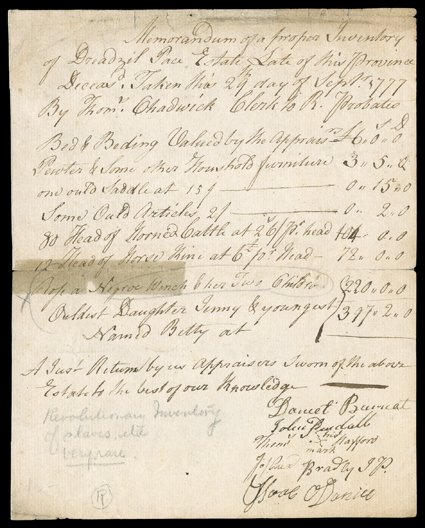 Memorandum of a proper Inventory
of Pace Estate Late of this Province
Deceasd. Taken this day of Septr. 1777
By Thoms. Chadwick Clerk to R. Probates
S D
Bed & Beding Valued by the Appraisrs 6 " 0 " 0
Pewter & Some other Houshold furniture 3 " 5 " 0
one ould Saddle at 15/ 0 " 15 " 0
Some Ould Articles 2/ 0 " 2 " 0
80 Head of Horned Cattle at pr. head 104 " 0 " 0
12 Head of Horse Kine at 6£ pr. Head 72 " 0 " 0
a Negroe Winch & her Two Children 220 " 0 " 0
Ouldest Daughter Jenny & youngest 397 " 2 " 0
Named Betty at
A Just Return by us Appraisers Sworn of the above
Estate to the best of our Knowledge
Daniel
John
Thoms. his Stafford
mark
Joshua Bradly J P
Isaac O Daniel
Revolutionary Inventory
of slaves, etc
very rare.